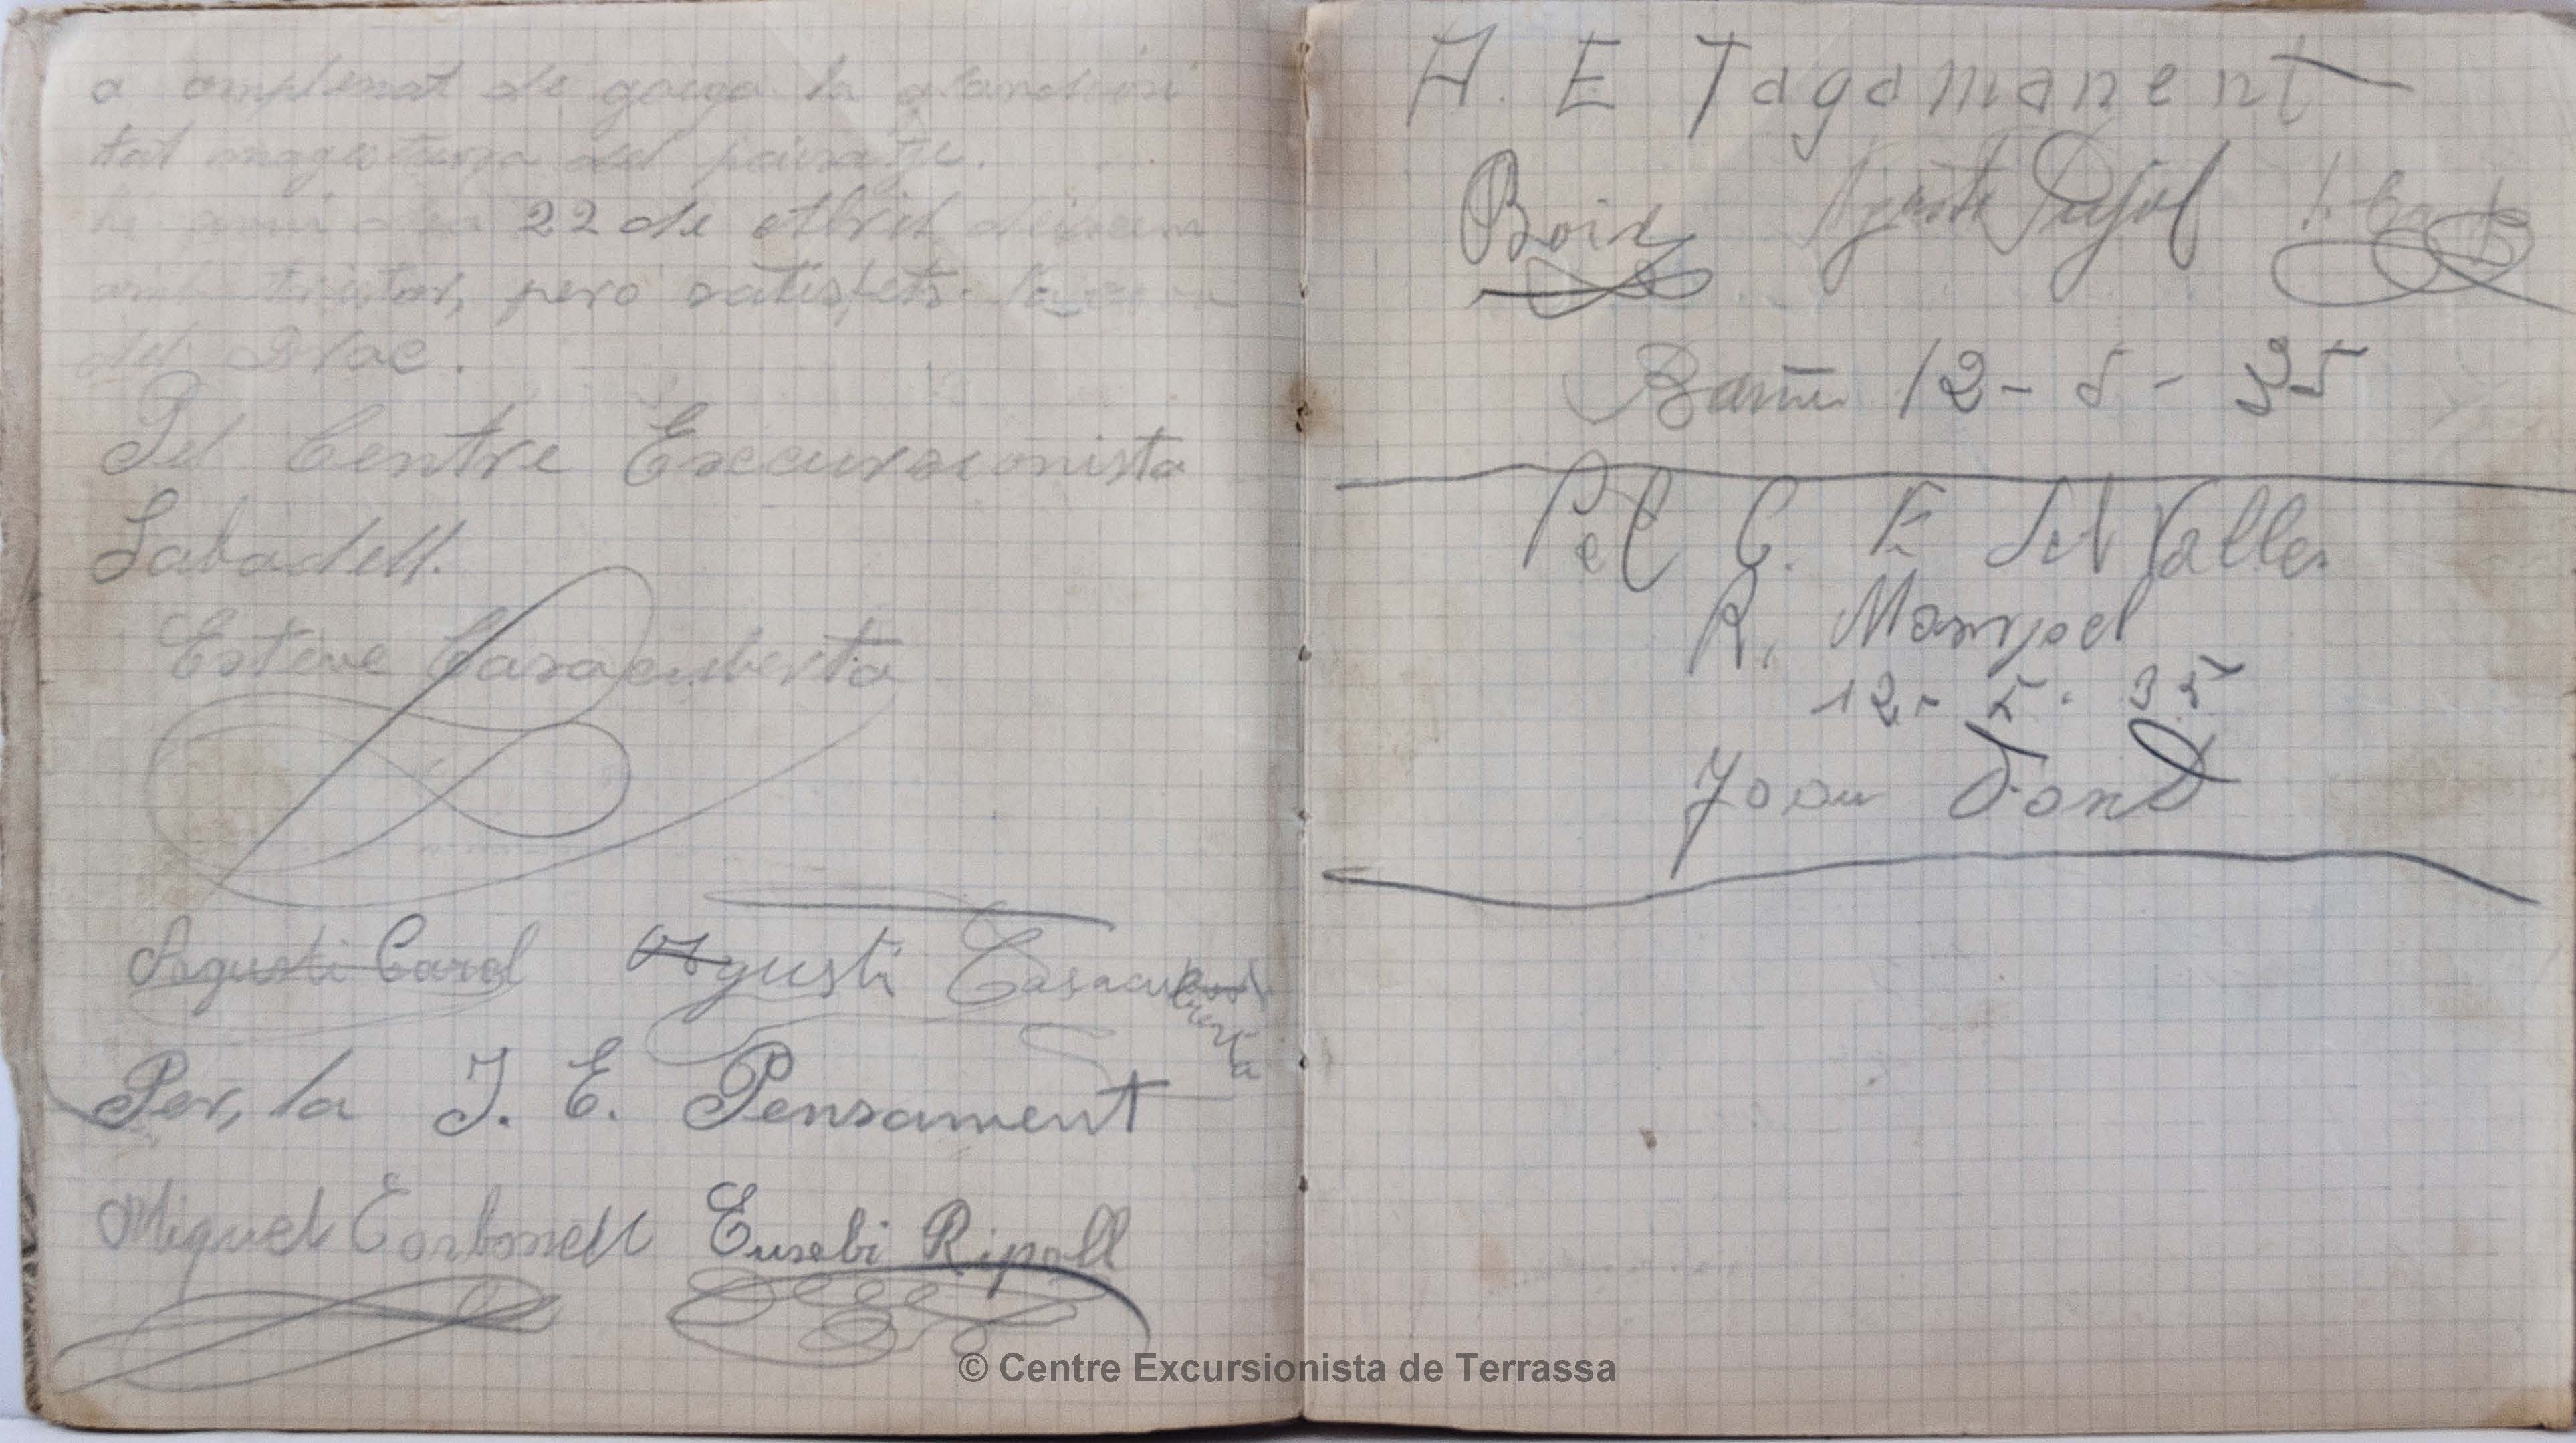 a omplenat de goiga la
tat magestuosa del paisatje.
22 de Abril deixem
amb tristor, pero satisfets
del Brac.
Pel Centre Excursionista
Sabadell.
Esteve Casacuberta
Agusti Carol Agusti Casacuberta
Per, la J. E. Pensament
Miquel Carbonell Eusebi Ripoll
A. E Tagamanent
Boix Agusti Pujol
12-5-35
Pel C. E del Valles
R. Mampel
12-5-35
Joan Font
© Centre Excursionista de Terrassa